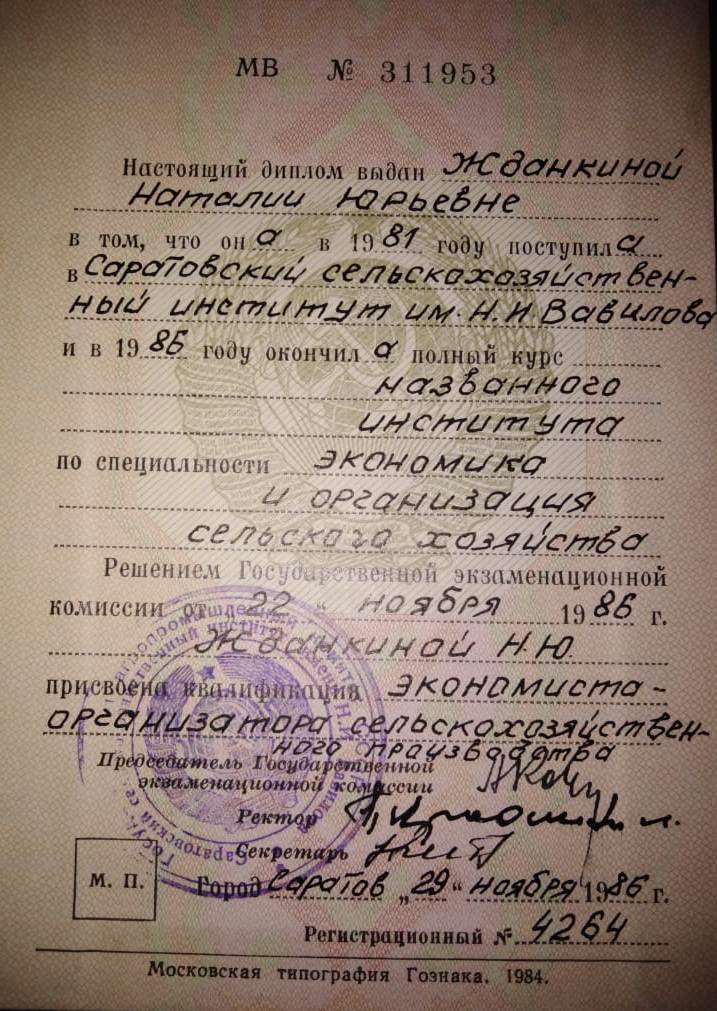 МВ № 311953
Настоящий диплом выдан Жданкиной
Наталии Юрьевне
в том, что он а в 1981 году поступил а
в Саратовский сельскохозяйствен-
ный институт им. Н.И. Вавилова
и в 1986 году окончил а полный курс
названного
института
по специальности экономика
и организация
сельского хозяйства
Решением Государственной экзаменационной
комиссии от 22 " ноября 1986 г.
Жданкиной Н.Ю.
присвоена квалификация экономиста-
организатора сельскохозяйствен-
ного производства
Председатель Государственной
экзаменационной комиссии
Ректор
Секретарь
М. П.
Город Саратов „29" ноября 1986 г.
Регистрационный № 4264
Московская типография Гознака. 1984.